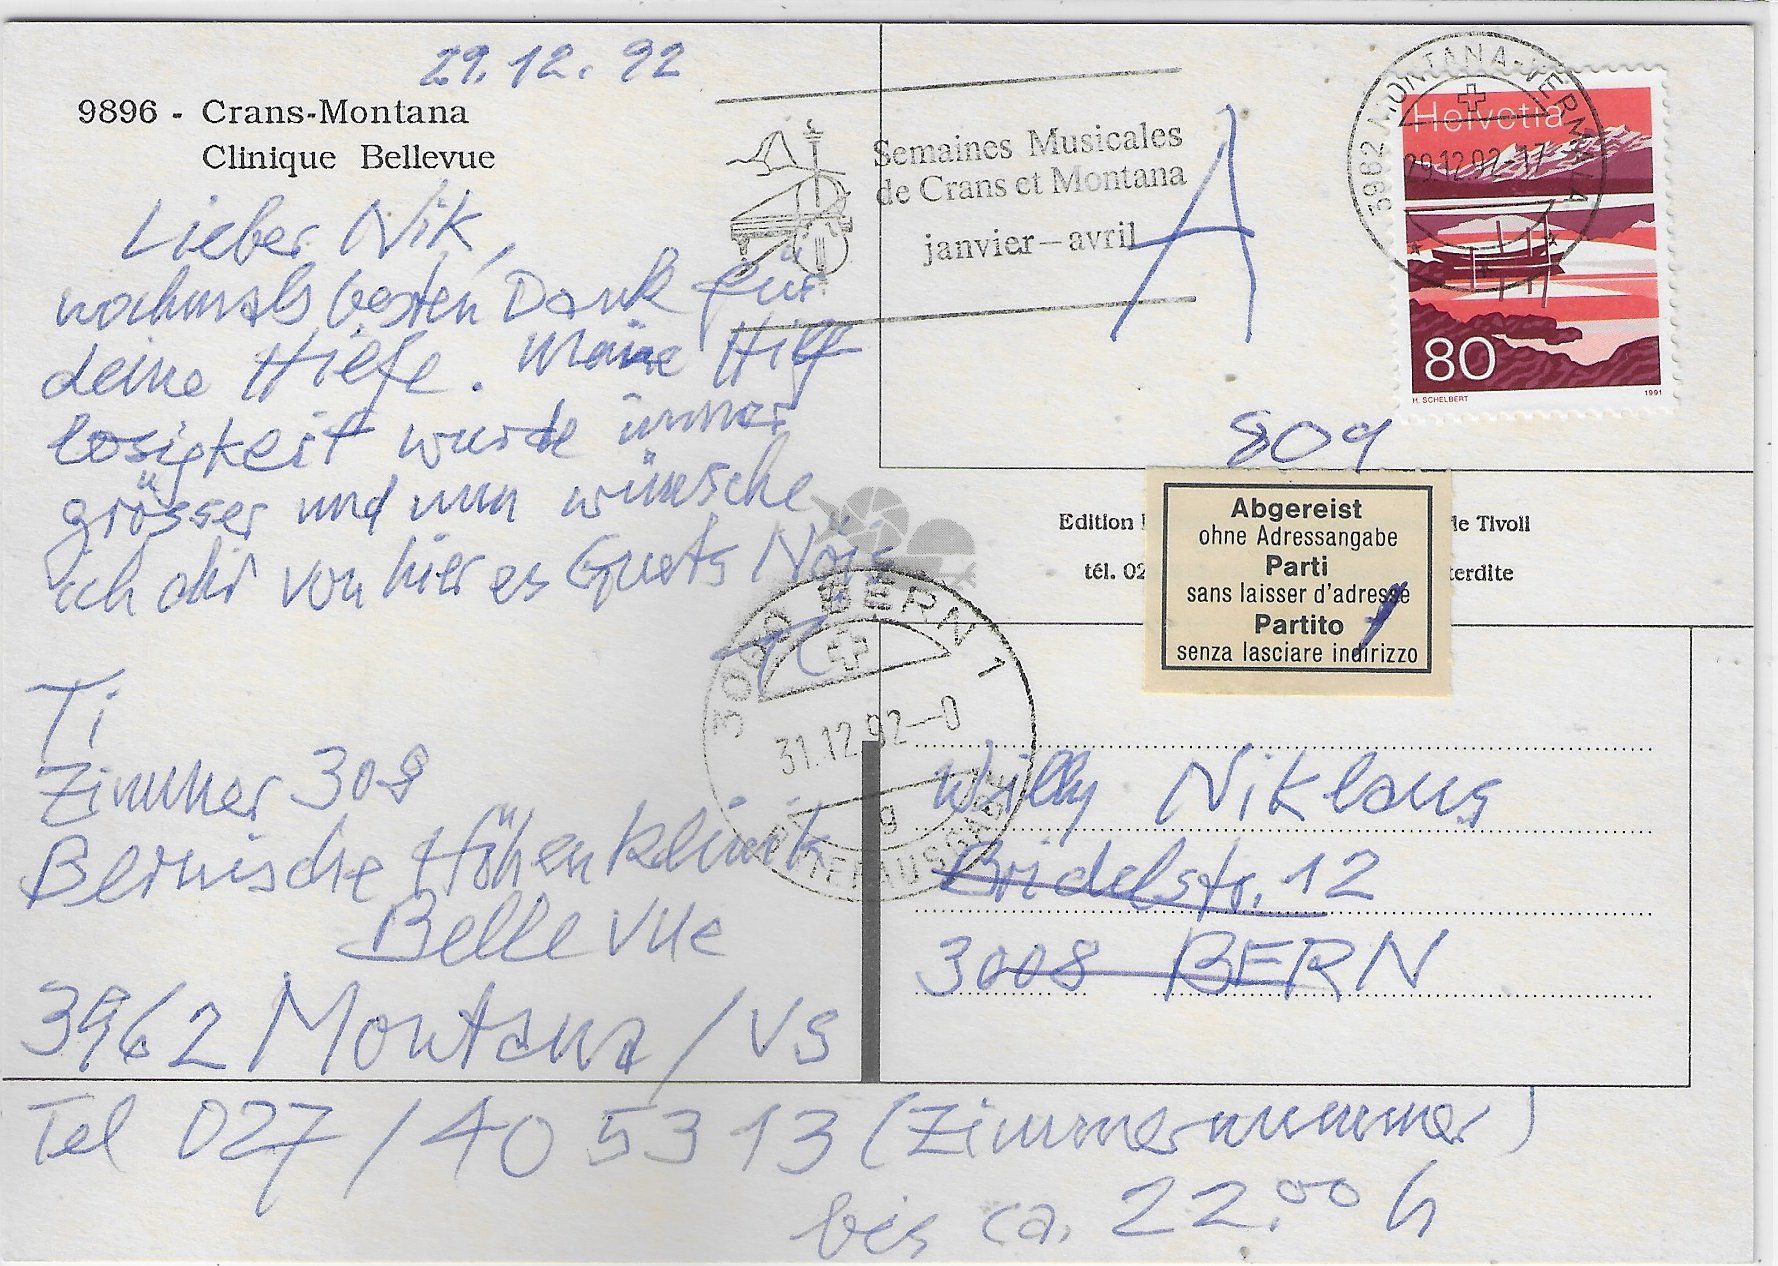 29.12.92
9896 - Crans-Montana
Clinique Bellevue
Lieber Nik,
nochmals besten Dank für
deine Hilfe. Meine Hilf
losigkeit wurde immer
grösser und nun wünsche
ich dir von hier es Guets Nöis.
Ti
Zimmer 308
Bernische Höhenklinik
Bellevue
3962 Montana/VS
Tel 027/40 53 13 (Zimmernummer)
bis ca. 22.00 h
Semaines Musicales
de Crans et Montana
janvier – avril
A
3962 MONTANA-VERMALA
29.12.92-17
Helvetia
80
H. SCHELBERT 1991
809
Edition
de Tivoli
tél. 02
terdite
Abgereist
ohne Adressangabe
Parti
sans laisser d'adresse
Partito
senza lasciare indirizzo
3000 BERN 1
31.12.92--0
9
BRIEFAUSGABE
Willy Niklaus
Bridelstr. 12
3008 BERN